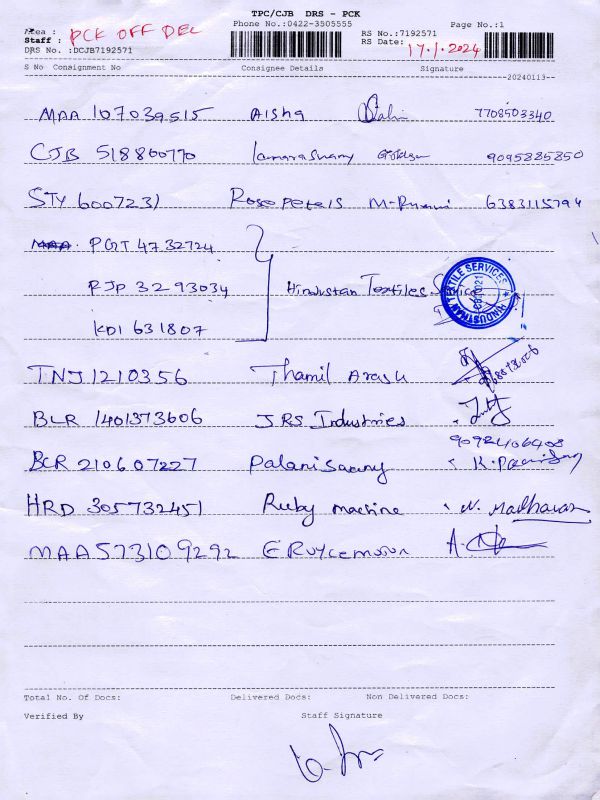 TPC/CJB DRS - PCK
Phone No.:0422-3505555 Page No.:1
Area : PCK OFF DEL
Staff :
RS No.:7192571
DRS No. :DCJB7192571
RS Date: 17.1.2024
S No Consignment No Consignee Details Signature
20240113
MAA 107039515 Aisha 7708503340
CJB 518800770 9095885850
STY 6007231 Rose petals 6383115794
MAA PGT 4732724
RJP 3293034 Hindustan Textiles
KDI 631807
HINDUSTHAN TEXTILE SERVICES
TNJ 1210356 Thamil Arasu
BLR 1401373606 JRS Industries
9092406408
BLR 210607227 Palanisamy
HRD 305732451 Ruby machine N. Madhavan
MAA 573109292
Total No. Of Docs: Delivered Docs: Non Delivered Docs:
Verified By Staff Signature